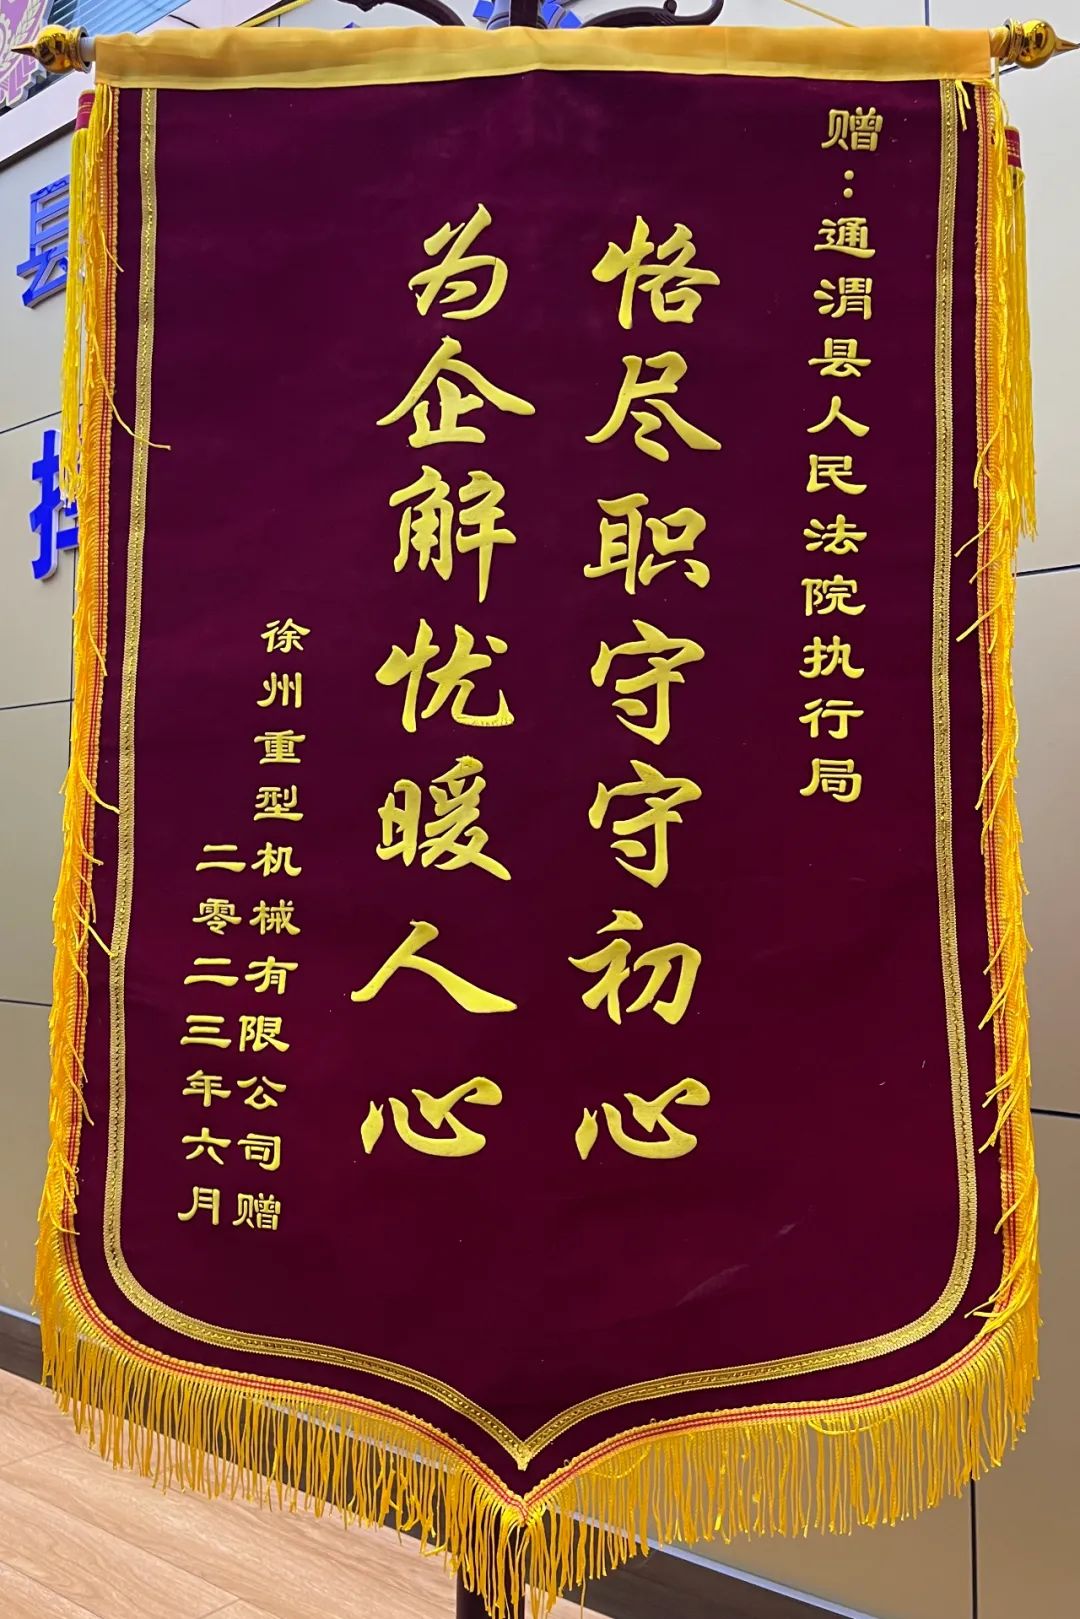 赠：通渭县人民法院执行局
恪尽职守守初心
为企解忧暖人心
徐州重型机械有限公司赠
二零二三年六月
县